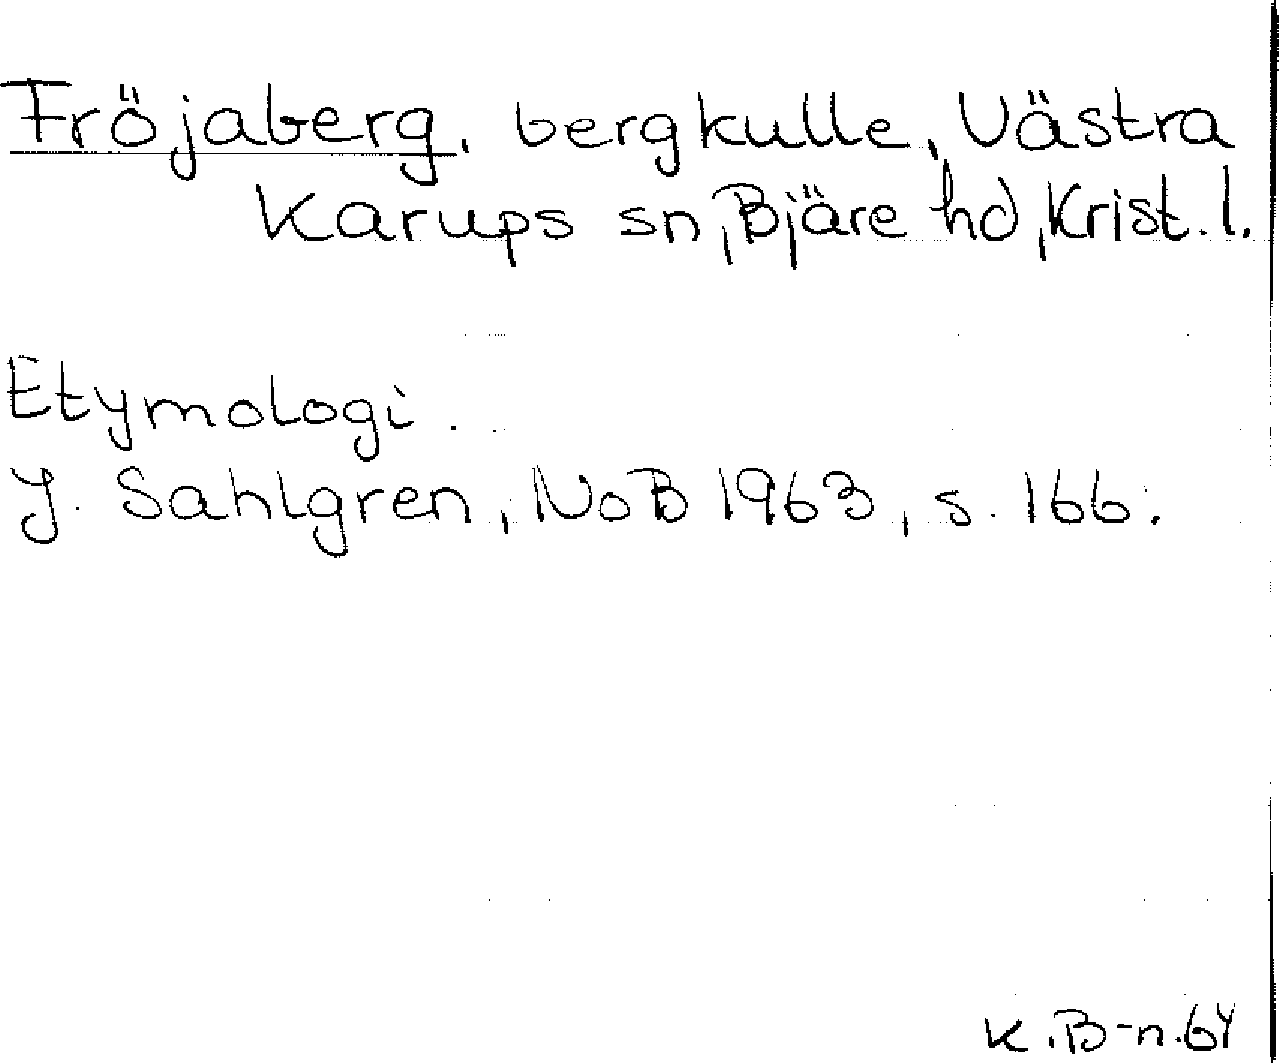 Fröjaberg, bergkulle, Västra
Karups sn, Bjäre hd, Krist. l.
Etymologi.
J. Sahlgren, NoB 1963, s. 166.
K.B-n.64